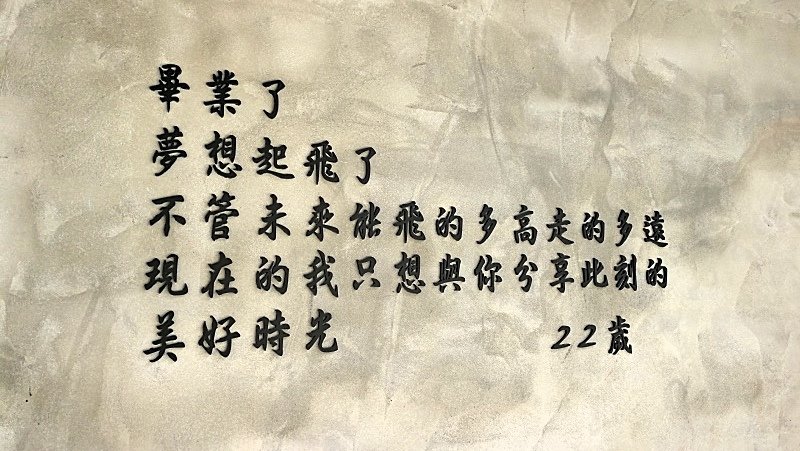 畢業了
夢想起飛了
不管未來能飛的多高走的多遠
現在的我只想與你分享此刻的
美好時光
22歲